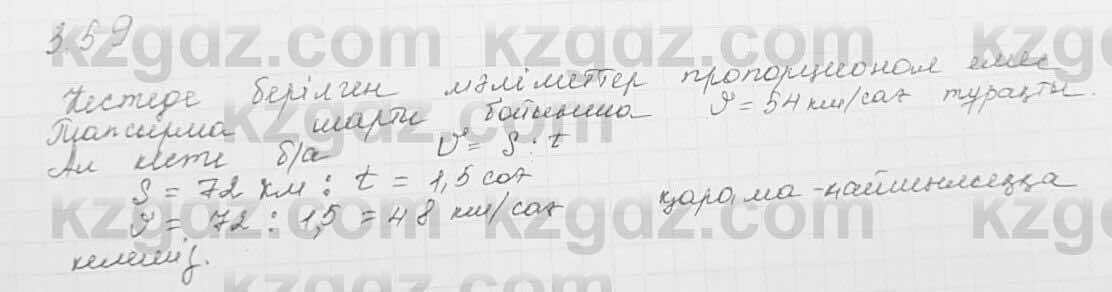 3.59
Кестеде берілген мәліметтер пропорционал емес
Тапсырма шарты бойынша ϑ = 54 км/сағ тұрақты.
Ал кесте б/а ϑ = S : t
S = 72 км; t = 1,5 сағ
ϑ = 72 : 1,5 = 48 км/сағ қарама-қайшылыққа
келеміз.
kzgdz.com kzgdz.com kzgdz.com
kzgdz.com kzgdz.com kzgdz.com